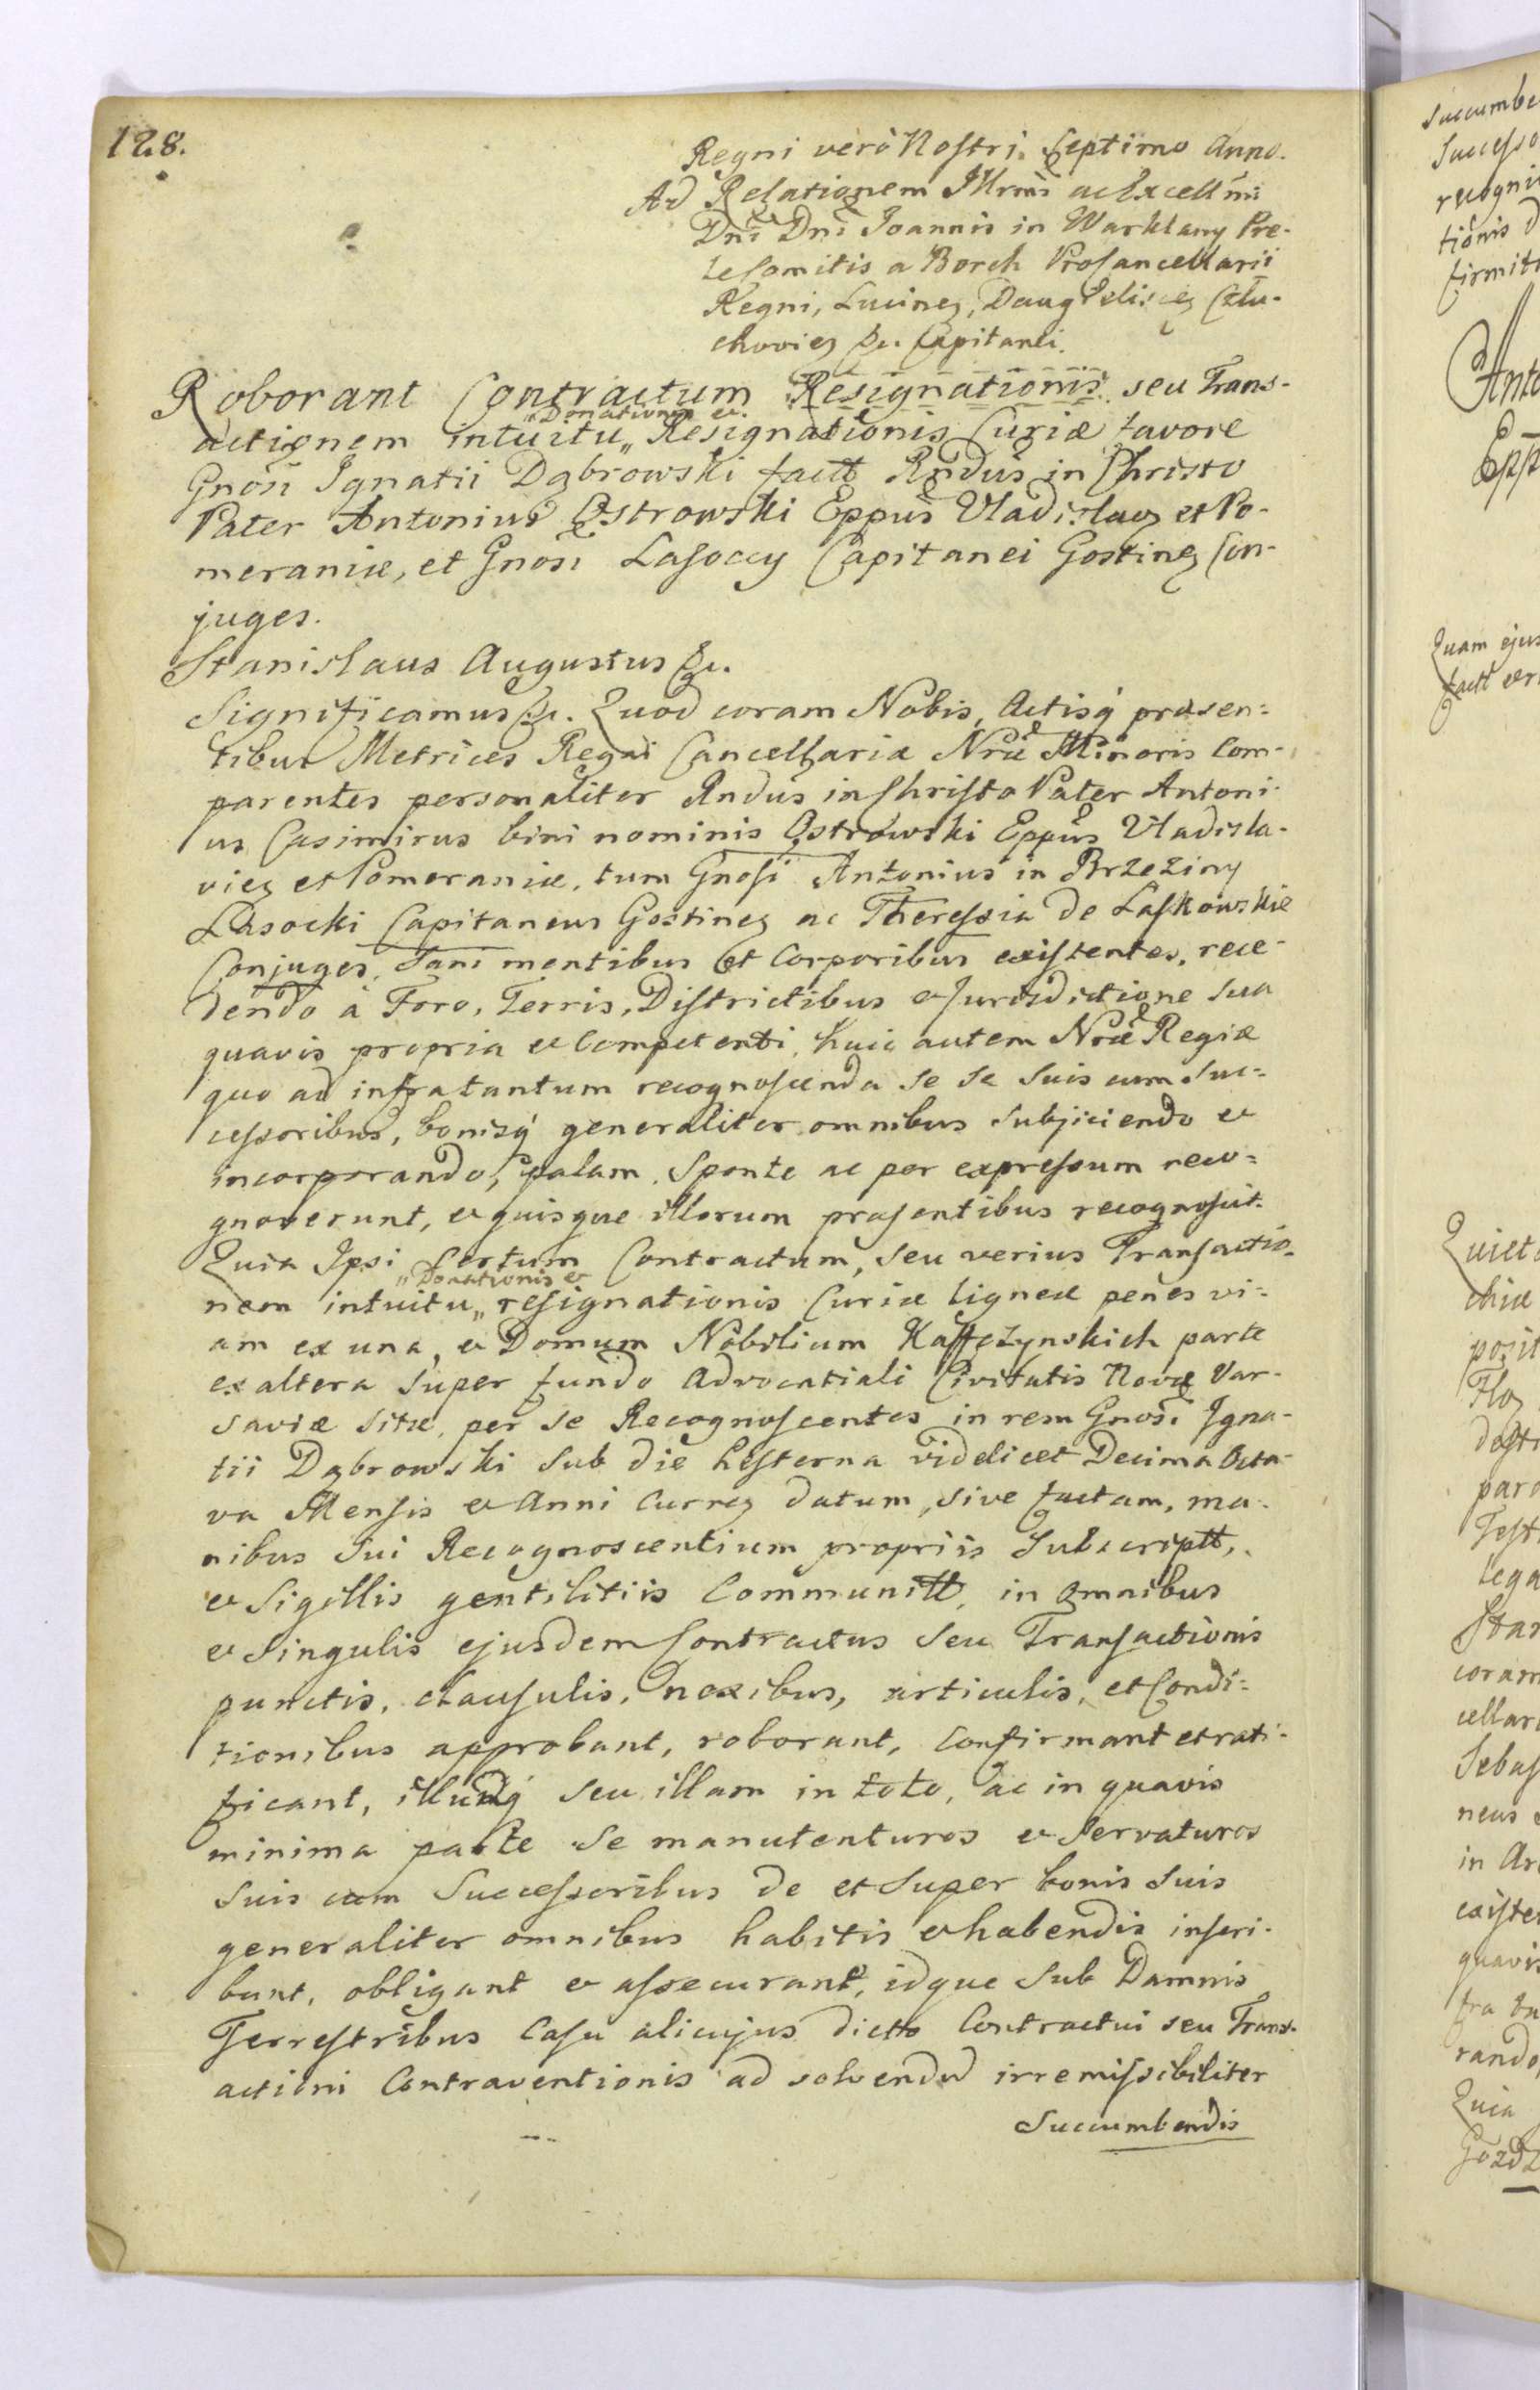 128.
Regni verò Nostri Septimo Anno.
Ad Relationem Illrmi ac Excellmi
Dni Dni Joannis in Warklany Pre-
lesomitis a Borch Procancellarii
Regni, Lucinez, Czlu-
choviez &c. Capitanei.
Roborant Contractum Resignationis seu Trans-
actionem intuitu „Donationis et„ Resignationis Curiæ favore
Gnosi Ignatii Dąbrowski fact Rndus in Christo
Pater Antonius Ostrowski Eppus Vladislaoz et Po-
meraniæ, et Gnosi Lasoccy Capitanei Gostinez Con-
juges.
Stanislaus Augustus &c.
Significamus &c. Quod coram Nobis, Actisq præsen-
tibus Metrices Regni Cancellariæ Nræ Minoris Com-
parentes personaliter Rndus in Christo Pater Antoni-
us Casimirus bini nominis Ostrowski Eppus Vladisla-
viez et Pomeraniæ, tum Gnosi Antonius in Brzeziny
Lasocki Capitaneus Gostinez ac Theressia de Laskowskie
Conjuges, Sani mentibus et Corporibus existentes, rece-
dendo à Foro, Terris, Districtibus et Jurisdictione sua
quavis propria et Competenti, huic autem Nræ Regiæ
quo ad infra tantum recognoscenda se se suis cum Suc-
cessoribus, bonisq generaliter omnibus subjiciendo et
incorporando, palam, Sponte ac per expressum reco-
gnoverunt, et quisque illorum præsentibus recognoscit.
Quia Ipsi Certum Contractum, seu verius Transactio-
nem intuitu „Donationis et„ resignationis Curiæ ligneæ penes vi-
am ex una, et Domum Nobilium parte
ex altera super fundo Advocatiali Civitatis Novæ Var-
saviæ sitæ, per se Recognoscentes in rem Gnosi Igna-
tii Dąbrowski sub die hesterna videlicet Decima Octa-
va Mensis et Anni Currez datum, sive factam, ma-
nibus Sui Recognoscentium propriis Subscriptt,
et Sigillis gentilitiis Communitt, in omnibus
et Singulis ejusdem Contractus seu Transactionis
punctis, clausulis, nexibus, articulis, et Condi-
tionibus approbant, roborant, Confirmant et rati-
ficant, illumq seu illam in toto, ac in quavis
minima parte se manutenturos et Servaturos
suis cum Successoribus de et super bonis suis
generaliter omnibus habitis et habendis inscri-
bunt, obligant et assecurant, idque sub Damnis
Terrestribus Casu alicujus dicto Contractui seu Trans-
actioni Contraventionis ad solvendu irremissibiliter
Succumbendis